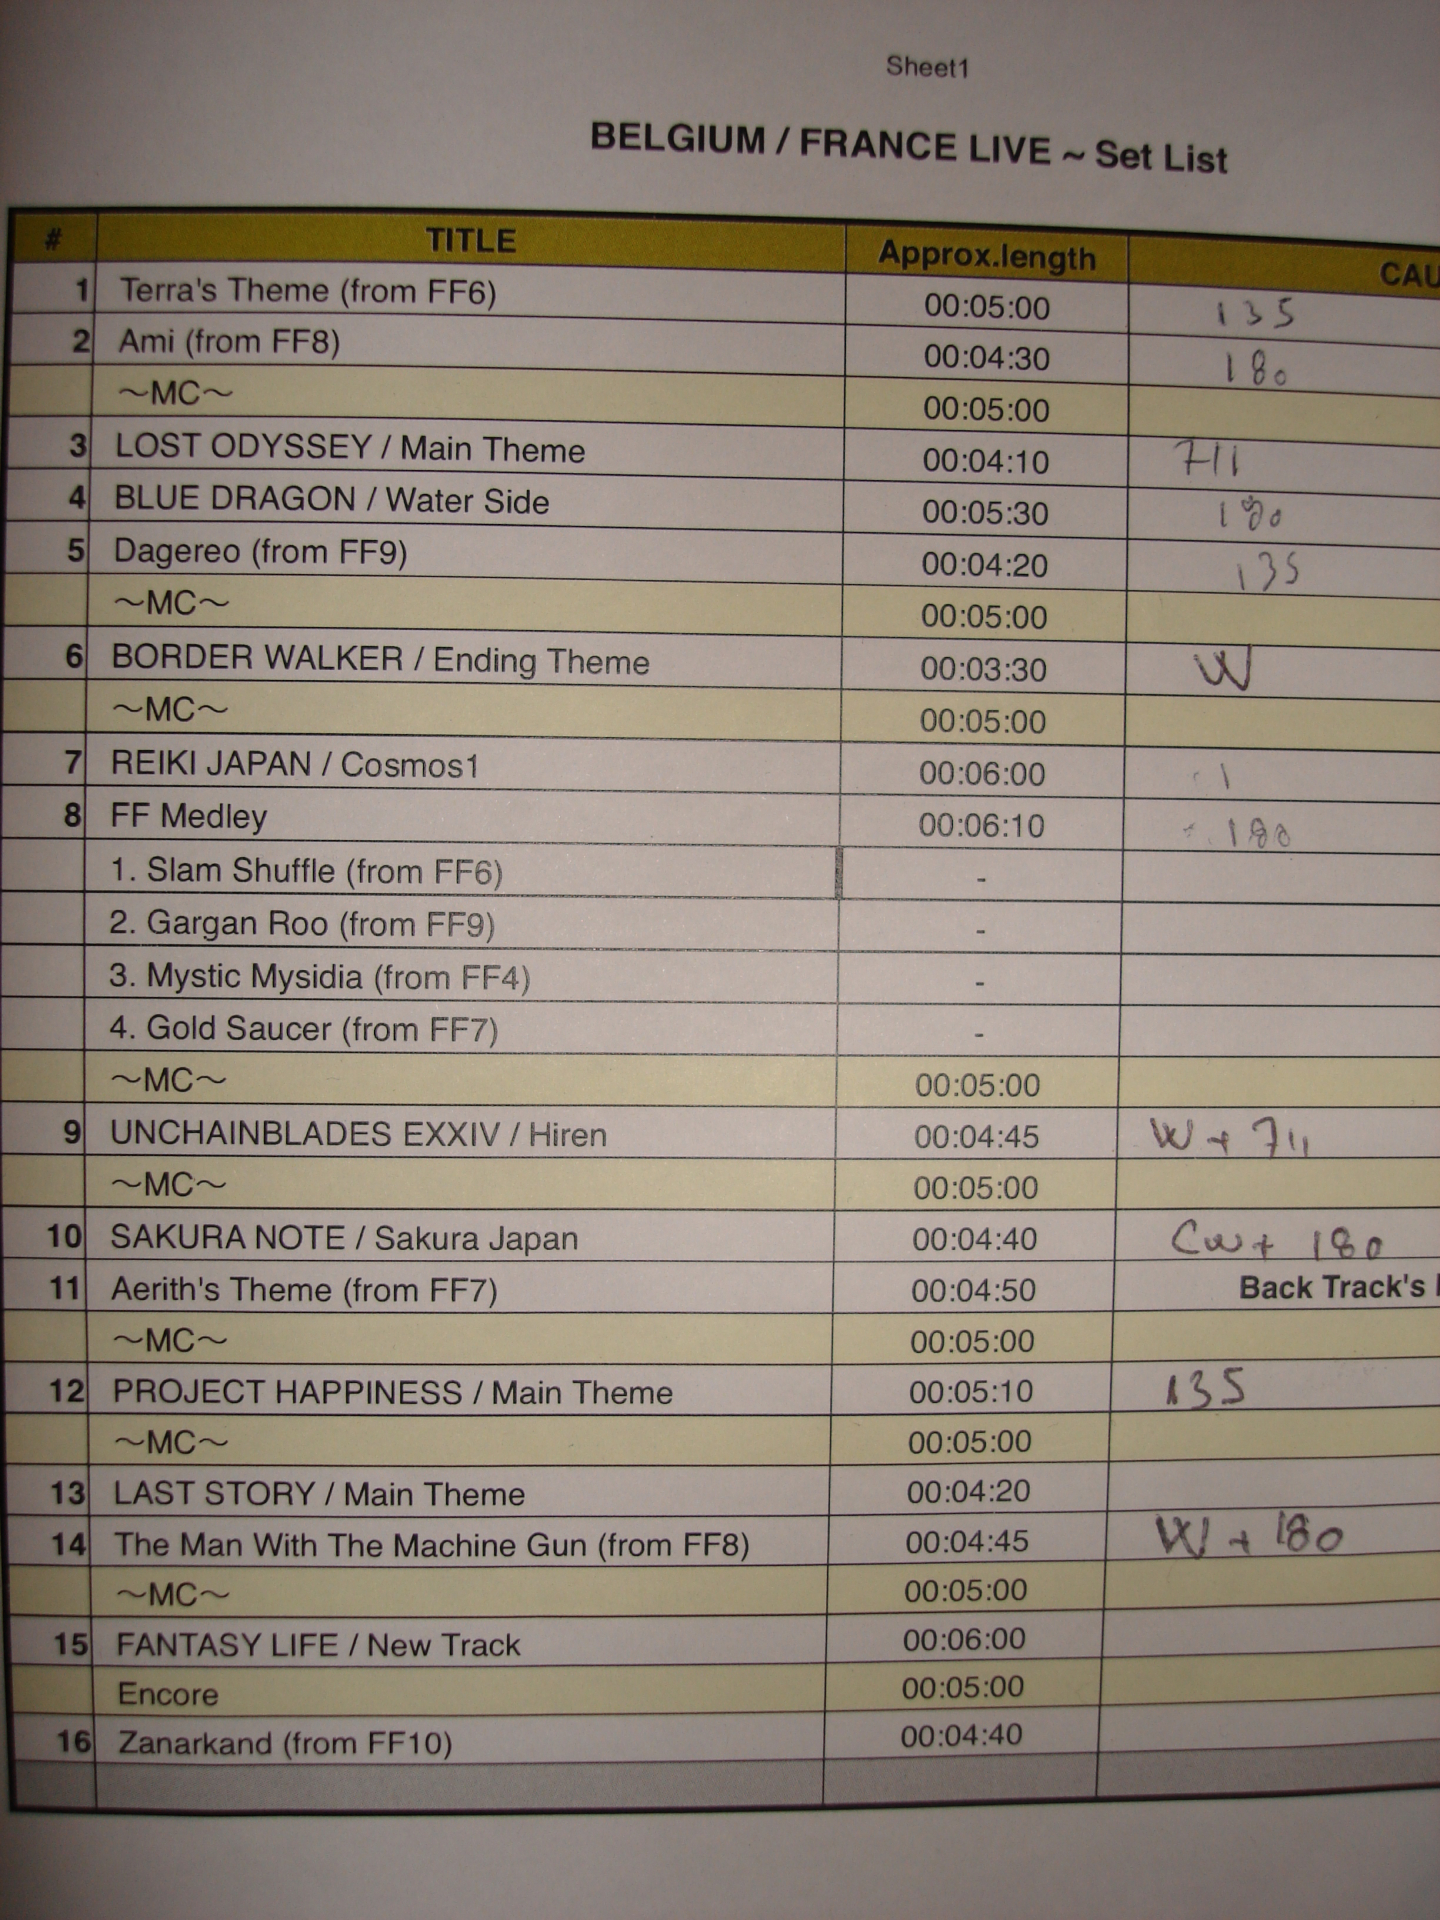 Sheet1
BELGIUM / FRANCE LIVE ~ Set List
# TITLE Approx.length
1 Terra's Theme (from FF6) 00:05:00 135
2 Ami (from FF8) 00:04:30 180
~MC~ 00:05:00
3 LOST ODYSSEY / Main Theme 00:04:10 711
4 BLUE DRAGON / Water Side 00:05:30 180
5 Dagereo (from FF9) 00:04:20 135
~MC~ 00:05:00
6 BORDER WALKER / Ending Theme 00:03:30 W
~MC~ 00:05:00
7 REIKI JAPAN / Cosmos1 00:06:00
8 FF Medley 00:06:10 180
1. Slam Shuffle (from FF6) -
2. Gargan Roo (from FF9) -
3. Mystic Mysidia (from FF4) -
4. Gold Saucer (from FF7) -
~MC~ 00:05:00
9 UNCHAINBLADES EXXIV / Hiren 00:04:45 W + 711
~MC~ 00:05:00
10 SAKURA NOTE / Sakura Japan 00:04:40 CW + 180
11 Aerith's Theme (from FF7) 00:04:50 Back Track's
~MC~ 00:05:00
12 PROJECT HAPPINESS / Main Theme 00:05:10 135
~MC~ 00:05:00
13 LAST STORY / Main Theme 00:04:20
14 The Man With The Machine Gun (from FF8) 00:04:45 W + 180
~MC~ 00:05:00
15 FANTASY LIFE / New Track 00:06:00
Encore 00:05:00
16 Zanarkand (from FF10) 00:04:40